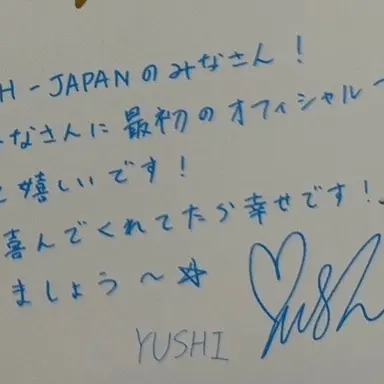 H-JAPANのみなさん！
なさんに最初のオフィシャル
嬉しいです！
喜んでくれてたら幸せです！
ましょう〜☆
Yushi
YUSHI